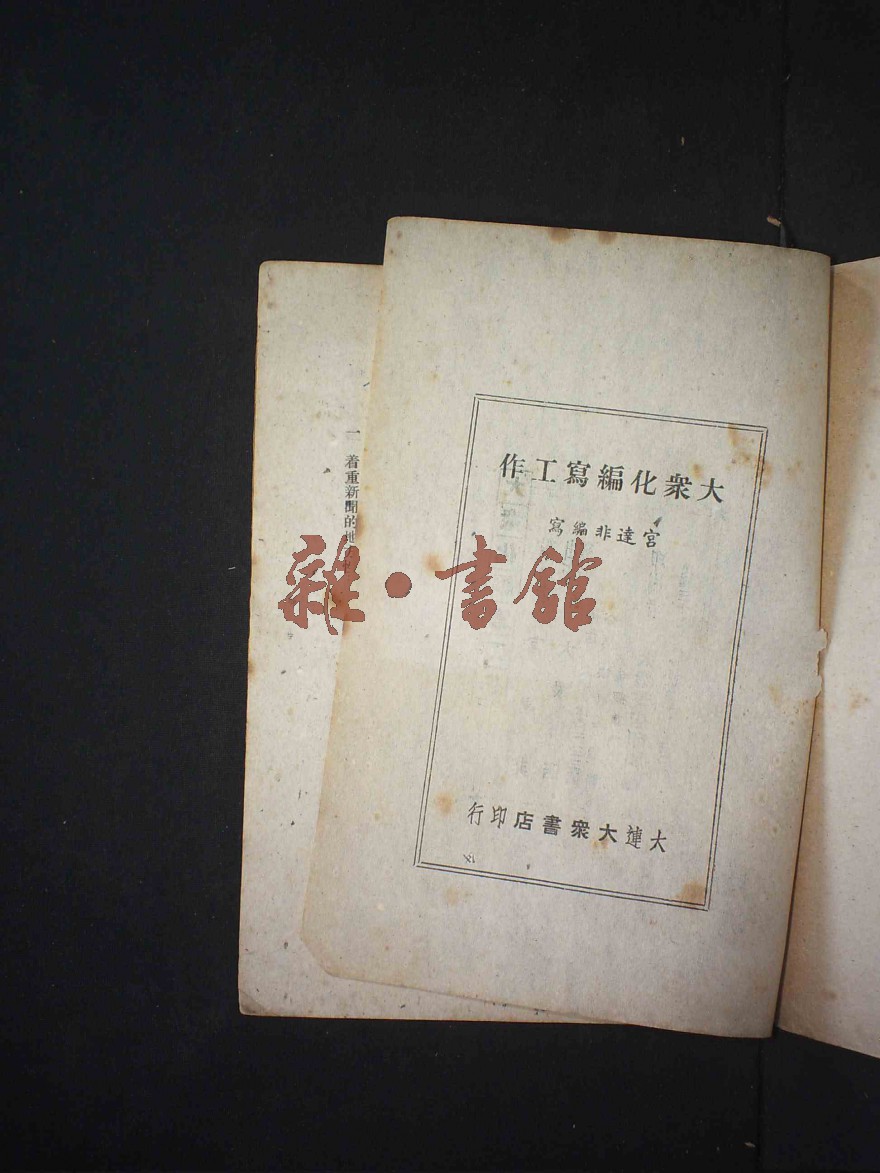 大衆化編寫工作
宮達非編寫
大連大衆書店印行
一 着重新聞的地
雜·書館